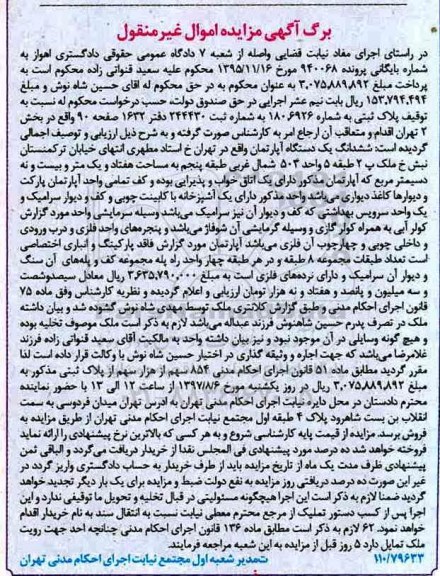 برگ آگهی مزایده اموال غیر منقول
در راستای اجرای مفاد نیابت قضایی واصله از شعبه ۷ دادگاه عمومی حقوقی دادگستری اهواز به
شماره بایگانی پرونده ۹۴۰۰۶۸ مورخ ۱۳۹۵/۱۱/۱۶ محکوم علیه سعید قنواتی زاده محکوم است به
پرداخت مبلغ ۳,۰۷۵,۸۸۹,۸۹۲ به عنوان محکوم به در حق محکوم له اقای حسین شاه نوش و مبلغ
۱۵۳,۷۹۴,۴۹۴ ریال بابت نیم عشر اجرایی در حق صندوق دولت، حسب درخواست محکوم له نسبت به
توقیف پلاک ثبتی به شماره ۱۸۰,۶۹۲۶ به شماره ثبت ۲۴۴۴۳۰ دفتر ۱۶۳۲ صفحه ۹۰ واقع در بخش
۲ تهران اقدام و متعاقب آن ارجاع امر به کارشناس صورت گرفته و به شرح ذیل ارزیابی و توصیف اجمالی
گردیده است: ششدانگ یک دستگاه آپارتمان واقع در تهران خ استاد مطهری انتهای خیابان ترکمنستان
نبش خ ملک پ ۲ طبقه ۵ واحد ۵۰۳ شمال غربی طبقه پنجم به مساحت هفتاد و یک متر و بیست و نه
دسیمتر مربع که آپارتمان مذکور دارای یک اتاق خواب و پذیرایی بوده و کف تمامی واحد آپارتمان پارکت
و دیوارها کاغذ دیواری می‌باشد واحد مذکور دارای یک آشپزخانه با کابینت چوبی و کف و دیوار سرامیک و
یک واحد سرویس بهداشتی که کف و دیوار آن نیز سرامیک می‌باشد وسیله سرمایشی واحد مورد گزارش
کولر آبی به همراه کولر گازی و وسیله گرمایشی آن شوفاژ می‌باشد و پنجره‌های واحد فلزی و درب ورودی
و داخلی چوبی و چهارچوب آن فلزی می‌باشد آپارتمان مورد گزارش فاقد پارکینگ و انباری اختصاصی
است تعداد طبقات مجموعه ۸ طبقه و در هر طبقه چهار واحد راه پله مجموعه کف و پله‌های آن سنگ
و دیوار آن سرامیک و دارای نرده‌های فلزی است به مبلغ ۳,۶۳۵,۷۹۰,۰۰۰ ریال معادل سیصدوشصت
و سه میلیون و پانصد و هفتاد و نه هزار تومان ارزیابی و اعلام گردیده و نظریه کارشناس وفق ماده ۷۵
قانون اجرای احکام مدنی و طبق گزارش کلانتری ملک توسط مهدی شاه نوش گشوده شد و بیان داشته
ملک در تصرف پدرم حسین شاهنوش فرزند عبداله می‌باشد لازم به ذکر است ملک موصوف تخلیه بوده
و هیچ گونه وسایلی در آن موجود نبود و نیز بیان داشته واحد به مالکیت آقای سعید قنواتی زاده فرزند
غلامرضا می‌باشد که جهت اجاره و وثیقه گذاری در اختیار حسین شاه نوش با وکالت قرار داده است لذا
مقرر گردید مطابق ماده ۵۱ قانون اجرای احکام مدنی ۸۵۴ سهم از هزار سهم از پلاک ثبتی مذکور به
مبلغ ۳,۰۷۵,۸۸۹,۸۹۲ ریال در روز یکشنبه مورخ ۱۳۹۷/۸/۶ از ساعت ۱۲ الی ۱۳ با حضور نماینده
محترم دادستان در محل دایره نیابت اجرای احکام مدنی تهران به آدرس تهران میدان فردوسی به سمت
انقلاب بن بست شاهرود پلاک ۴ طبقه اول مجتمع نیابت اجرای احکام مدنی تهران از طریق مزایده به
فروش برسد. مزایده از قیمت پایه کارشناسی شروع و به هر کسی که بالاترین نرخ پیشنهادی را ارائه نماید
فروخته خواهد شد ده درصد مورد پیشنهادی فی المجلس نقدا از خریدار دریافت می‌گردد و الباقی ثمن
پیشنهادی ظرف مدت یک ماه از تاریخ مزایده باید از طرف خریدار به حساب دادگستری واریز گردد در
غیر این صورت ده درصد دریافتی روز مزایده به نفع دولت ضبط و مزایده برای یک بار دیگر تجدید خواهد
گردید ضمنا لازم به ذکر است این اجرا هیچگونه مسئولیتی در قبال تخلیه و تحویل ما توقیفی ندارد و این
اجرا پس از کسب دستور تملیک از مرجع محترم معطی نیابت نسبت به انتقال سند به نام خریدار اقدام
خواهد نمود. ۶۲ لازم به ذکر است مطابق ماده ۱۳۶ قانون اجرای احکام مدنی چنانچه احد جهت رویت
ملک تمایل دارد ۵ روز قبل از مزایده به این شعبه مراجعه فرمایند.
۱۱۰/۷۹۶۳۳ ت مدیر شعبه اول مجتمع نیابت اجرای احکام مدنی تهران